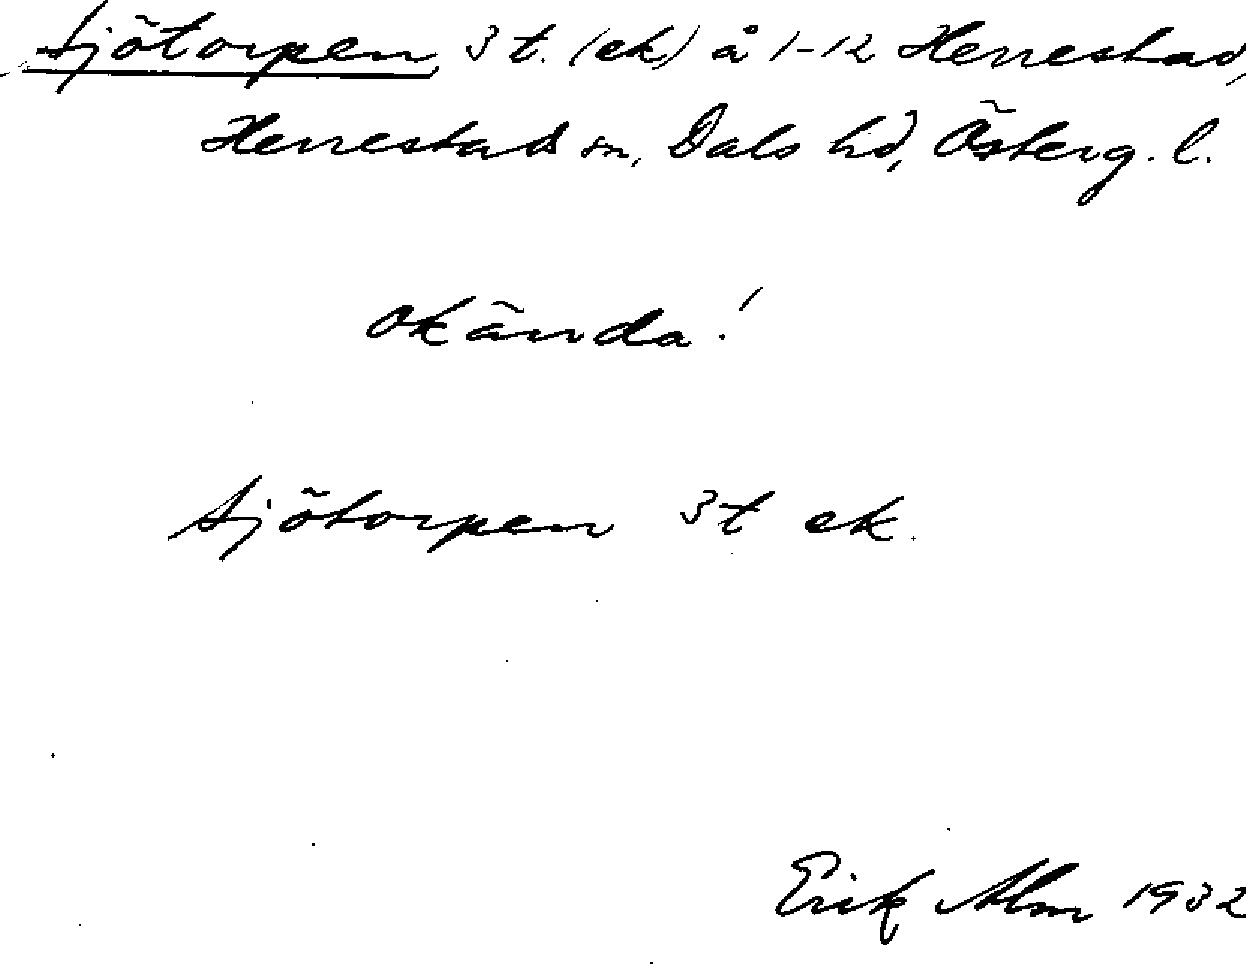 Sjötorpen, 3 t. (ek) å 1-12 Herrestad,
Herrestads sn, Dals hd, Österg. l.
okända!
Sjötorpen 3 t ek.
Erik Alm 1932